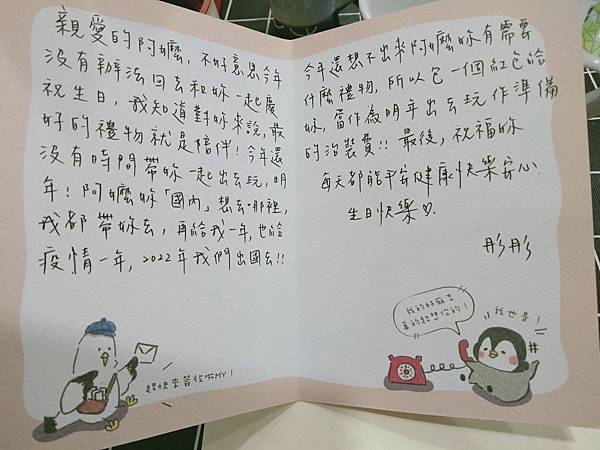 親愛的阿嬤,不好意思今年
沒有辦法回去和妳一起慶
祝生日,我知道對妳來說,最
好的禮物就是陪伴!今年還
沒有時間帶妳一起出去玩,明
年!阿嬤妳「國內」想去哪裡,
我都帶妳去,再給我一年,也給
疫情一年,2022年我們出國去!!
趕快來簽收啦MY!
今年還想不出來阿嬤妳有需要
什麼禮物,所以包一個紅包給
妳,當作為明年出去玩作準備
的治裝費!!最後,祝福妳
每天都能平安健康快樂安心.
生日快樂♡.
彤彤
我的好麻吉
真的超想你的!
我也是!